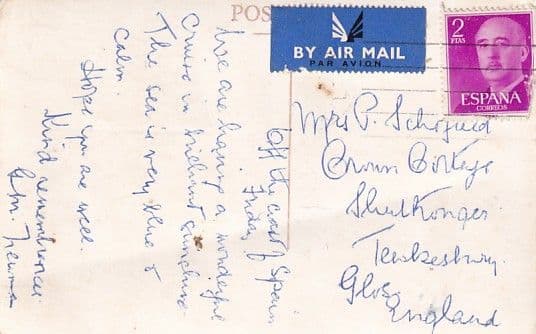 POS
BY AIR MAIL
PAR AVION
2
PTAS
ESPAÑA
CORREOS
Off the coast of Spain
Friday
We are having a wonderful
Cruise in brilliant sunshine
The sea is very blue &
Calm.
Hope you are well.
Kind remembrances
Mrs P. Schofield
Crown Cottage
Shutonger
Tewkesbury.
Glos.
England